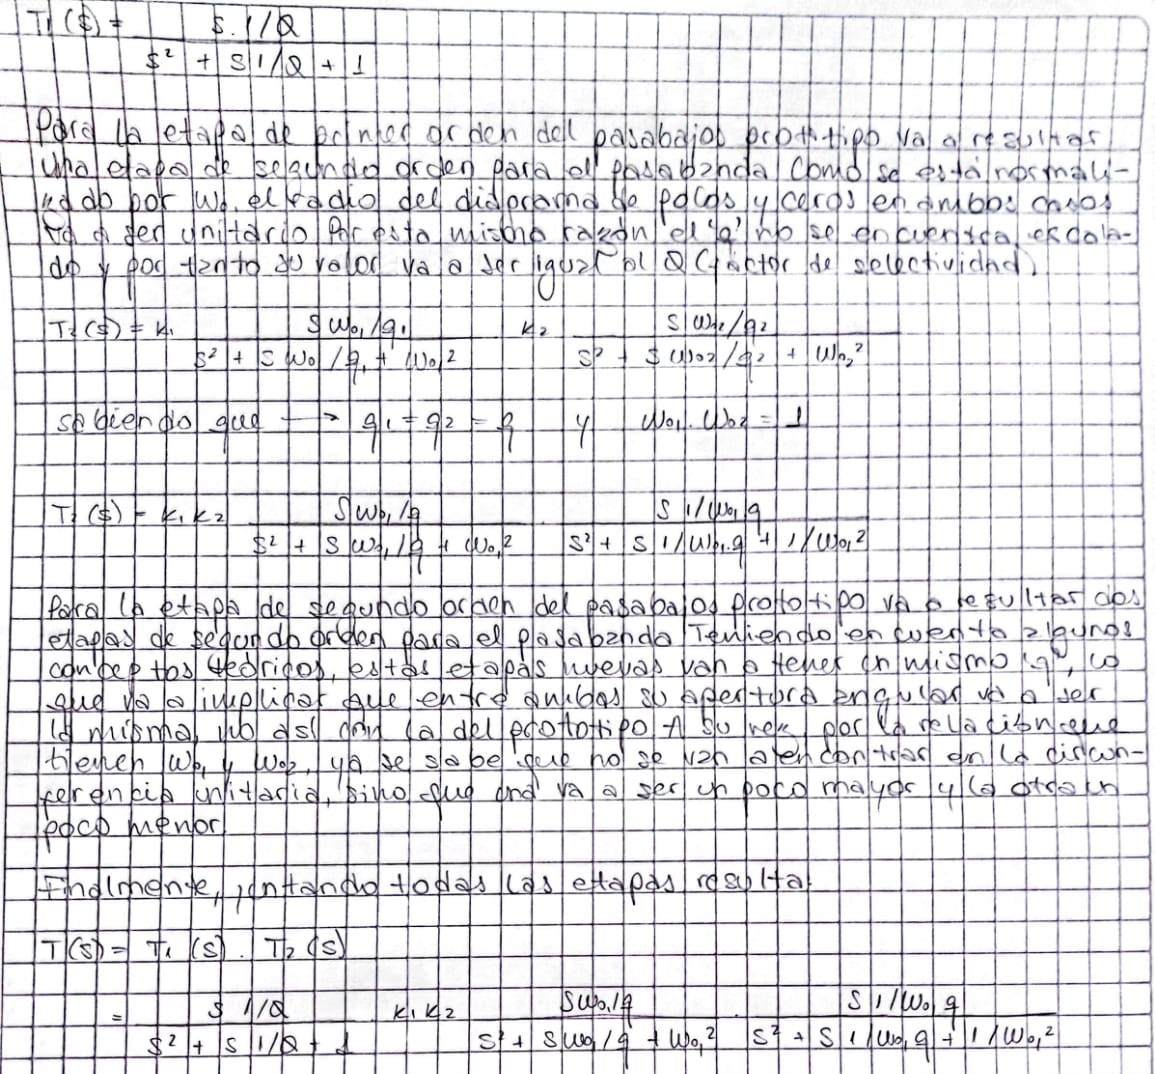 T₁ ($) = S. 1/Q
$² + S 1/Q + 1
Para la etapa de primer orden del pasabajos prototipo va a resultar
una etapa de segundo orden para el pasabanda. Como se está normali-
zando por W₀, el radio del diagrama de polos y ceros en ambos casos
va a ser unitario. Por esta misma razón el 'q' no se encuentra escala-
do y por tanto su valor va a ser igual al Q (factor de selectividad).
T₂ ($) = K₁ S W₀₁/q₁ K₂ S W₀₂/q₂
S² + S W₀₁/q₁ + W₀₁² S² + S W₀₂/q₂ + W₀₂²
sabiendo que → q₁ = q₂ = q y W₀₁. W₀₂ = 1
T₂ ($) = K₁ K₂ S W₀₁/q . S 1/W₀₁ q
S² + S W₀₁/q + W₀₁² S² + S 1/W₀₁.q + 1/W₀₁²
Para la etapa de segundo orden del pasabajos prototipo va a resultar dos
etapas de segundo orden para el pasabanda. Teniendo en cuenta algunos
conceptos teóricos, estas etapas nuevas van a tener un mismo "q", lo
que va a implicar que entre ambas su apertura angular va a ser
la misma, no así con la del prototipo. A su vez, por la relación que
tienen W₀₁ y W₀₂, ya se sabe que no se van a encontrar en la circun-
ferencia unitaria, sino que una va a ser un poco mayor y la otra un
poco menor.
Finalmente, juntando todas las etapas resulta:
T ($) = T₁ (S) . T₂ (S)
= S 1/Q K₁ K₂ S W₀₁/q . S 1/W₀₁ q
S² + S 1/Q + 1 S² + S W₀₁/q + W₀₁² S² + S 1/W₀₁ q + 1/W₀₁²